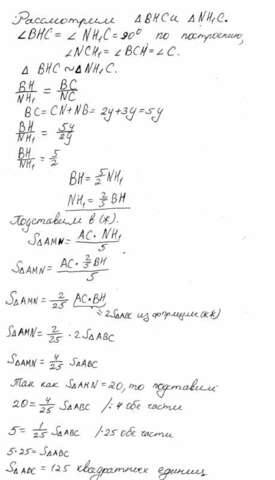 Рассмотрим △BHC и △NH₁C.
∠BHC = ∠NH₁C = 90° по построению,
∠NCH₁ = ∠BCH = ∠C.
△ BHC ~ △NH₁C.
BH/NH₁ = BC/NC
BC = CN + NB = 2y + 3y = 5y
BH/NH₁ = 5y/2y
BH/NH₁ = 5/2
BH = 5/2 NH₁
NH₁ = 2/5 BH
Подставим в (*).
S△AMN = AC · NH₁/5
S△AMN = AC · 2/5 BH/5
S△AMN = 2/25 AC · BH
= 2S△ABC из формулы (**)
S△AMN = 2/25 · 2S△ABC
S△AMN = 4/25 S△ABC
Так как S△AMN = 20, то подставим
20 = 4/25 S△ABC /: 4 обе части
5 = 1/25 S△ABC /· 25 обе части
5 · 25 = S△ABC
S△ABC = 125 квадратных единиц